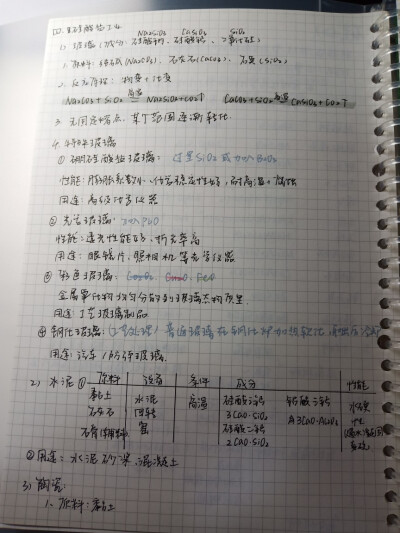 四. 硅酸盐工业
Na2SiO3 CaSiO3 SiO2
1) 玻璃 (成分: 硅酸钠, 硅酸钙, 二氧化硅)
1. 原料: 纯碱(Na2CO3), 石灰石(CaCO3), 石英(SiO2)
2. 反应原理: 物变+化变
Na2CO3 + SiO2 高温 Na2SiO3 + CO2↑ CaCO3 + SiO2 高温 CaSiO3 + CO2↑
3. 无固定熔点, 某个范围逐渐软化
4. 特种玻璃
① 硼硅酸盐玻璃: 过量SiO2或加入B2O3
性能: 膨胀系数小, 化学稳定性好, 耐高温、腐蚀
用途: 高级化学仪器
② 光学玻璃: 加入PbO
性能: 透光性能好, 折光率高
用途: 眼镜片, 照相机等光学仪器
③ 彩色玻璃: Co2O3 Cu2O FeO
金属氧化物均匀分散到玻璃态物质里
用途: 工艺玻璃制品
④ 钢化玻璃: 普通玻璃在钢化炉加热软化
用途: 汽车/防弹玻璃.
2) 水泥 ① 原料 设备 条件 成分 性能
黏土 水泥 高温 硅酸三钙 铝酸三钙 水硬
石灰石 回转 3CaO·SiO2 3CaO·Al2O3 性
石膏(辅料) 窑 硅酸二钙
2CaO·SiO2
② 用途: 水泥砂浆、混凝土
3) 陶瓷:
1. 原料: 黏土